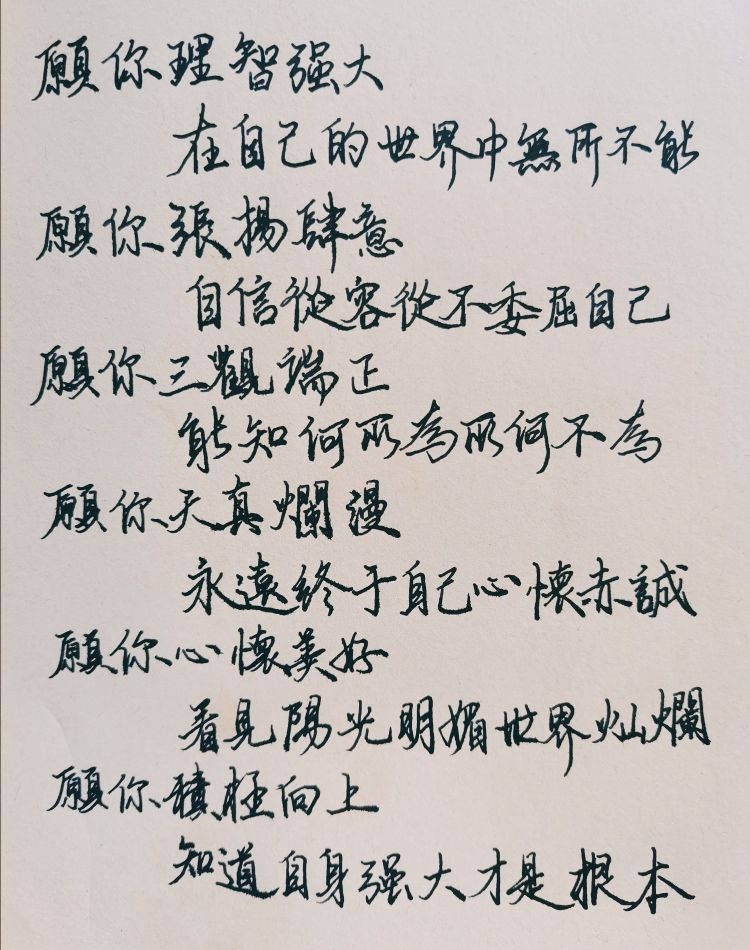 願你理智强大
在自己的世界中無所不能
願你張揚肆意
自信從容從不委屈自己
願你三觀端正
能知何所為所何不為
願你天真爛漫
永遠終于自己心懷赤誠
願你心懷美好
看見陽光明媚世界灿爛
願你積極向上
知道自身强大才是根本